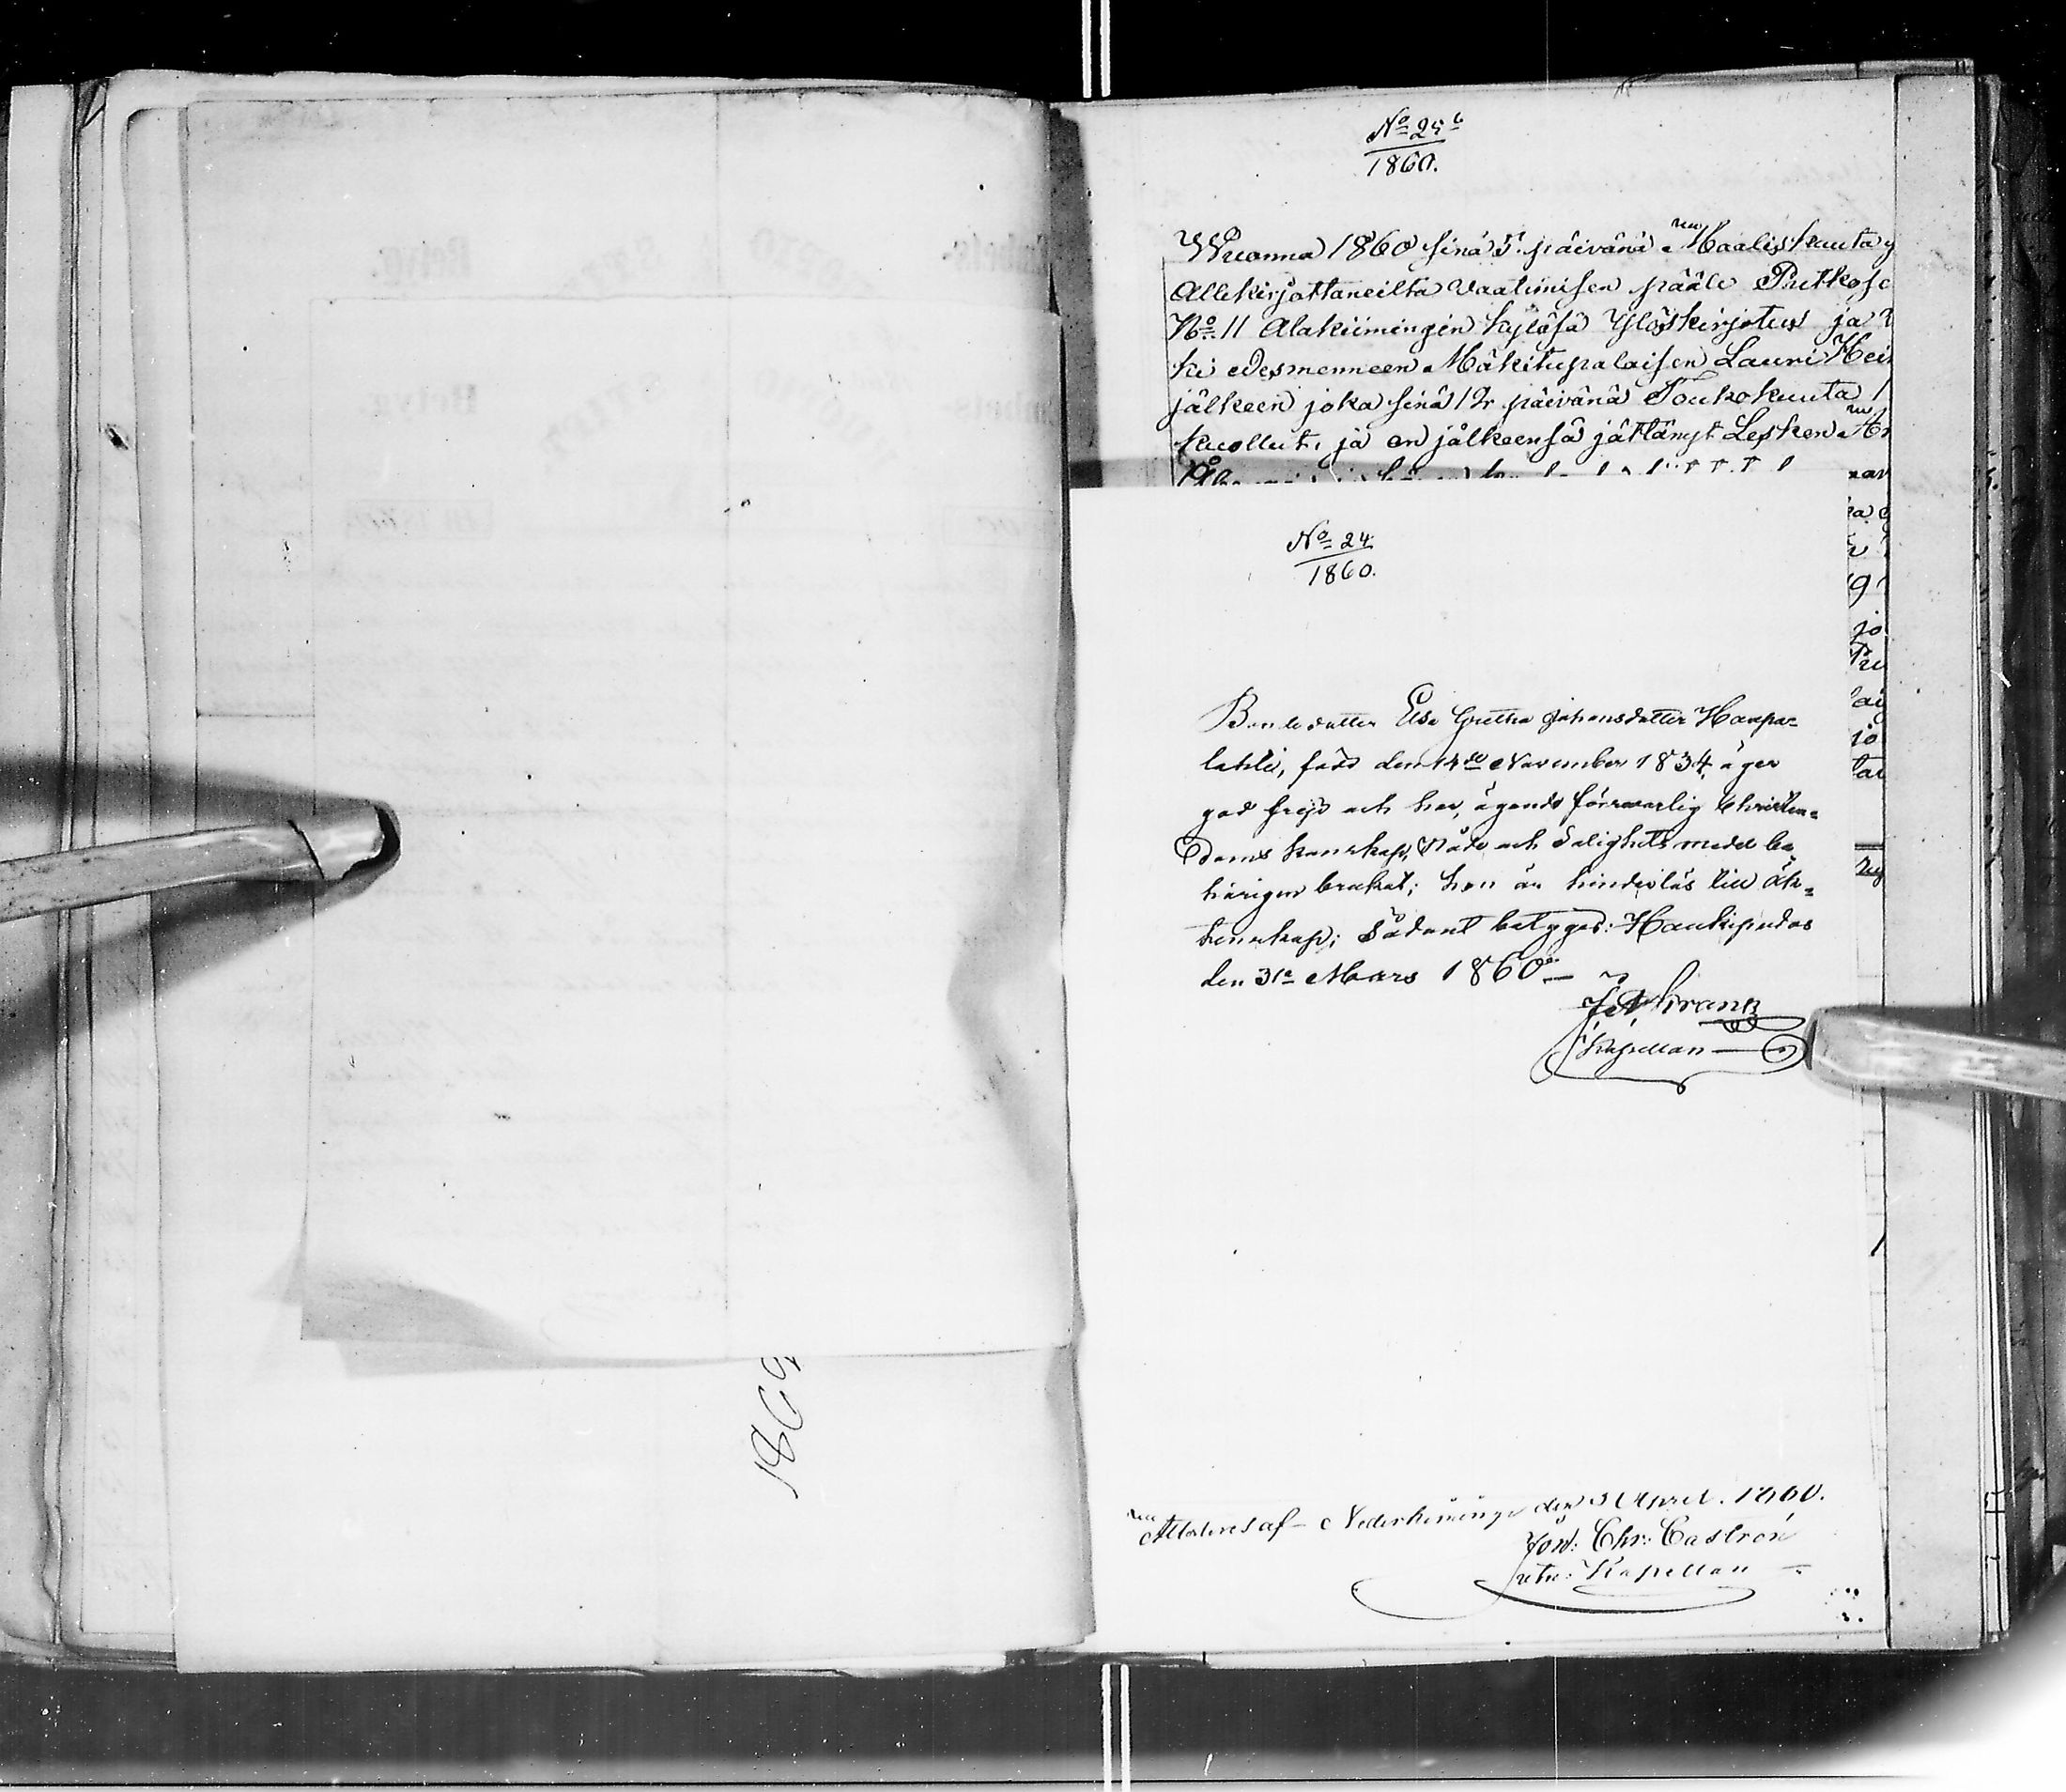 No 25 b
1860.
Wuonna 1860 sinä 5. päivänä Maaliskuuta
Allekirjottaneilta Vaatimisen pääle
No 11 Alakiimingin kyläsä Ylöskirjotus ja
ki edesmenneen Mäkitupalaisen Lauri Hei
jälkeen joka sinä 12 päivänä Toukokuuta 1
kuollut, ja on jälkeensä jättänyt Lesken
No 24
1860.
Bondedotter Elsa Gretha Johansdotter Haapa=
lahti, född den 14de November 1834, äger
god frejd och har, ägande försvarlig Christen=
doms kunskap, Nåde och Salighets medel be
hörigen brukat; hon är hinderlös till äk=
tenskap; Sådant betygas: Haukipudas
den 31a Mars 1860.
Kranz
Kapellan
af Nederkiminge den 3 April. 1860.
Joh: Chr: Castrén
Kapellan
186